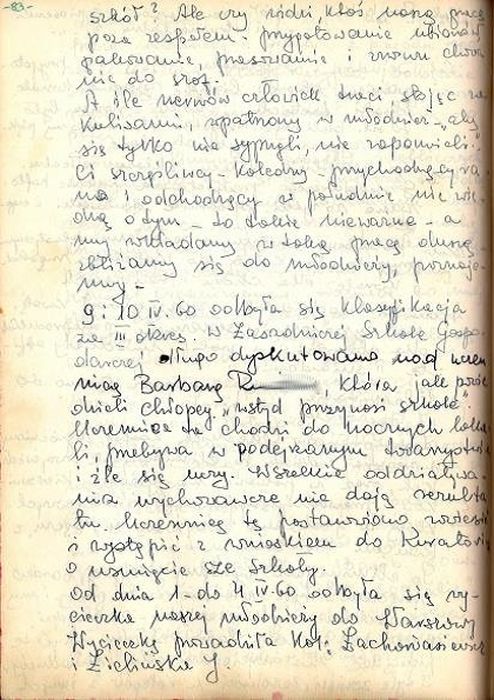 -83-
szkół? Ale czy widzi ktoś naszą pracę
poza zespołem. przygotowanie ubiorów
pakowanie, prasowanie i znowu chowa
nie do szaf.
A ile nerwów człowiek traci, stojąc za
kulisami, zapatrzony w młodzież - „aby
się tylko nie sypnęli, nie zapomnieli."
Ci szczęśliwcy - koledzy - przychodzący ra
no i odchodzący w południe nie wie
dzą o tym - to takie nieważne - a
my wkładamy w taką pracę duszę
zbliżamy się do młodzieży, poznaje-
my -
9 i 10 IV. 60 odbyła się klasyfikacja
za III okres. W Zasadniczej Szkole Gospo
darczej długo dyskutowano nad uczen
nicą Barbarą, która jak powie
dzieli chłopcy „wstyd przynosi szkole".
Uczennica ta chodzi do nocnych loka
li, przebywa w podejrzanym towarzystwie
i źle się uczy. Wszelkie oddziaływa-
nia wychowawcze nie dają rezulta
tu. Uczennicę tę postanowiono zwiesić
i wystąpić z wnioskiem do Kuratorium
o usunięcie ze szkoły.
Od dnia 1- do 4 IV-60 odbyła się wy-
cieczka naszej młodzieży do Warszawy
Wycieczkę prowadziła Kol:
i Zielińska J